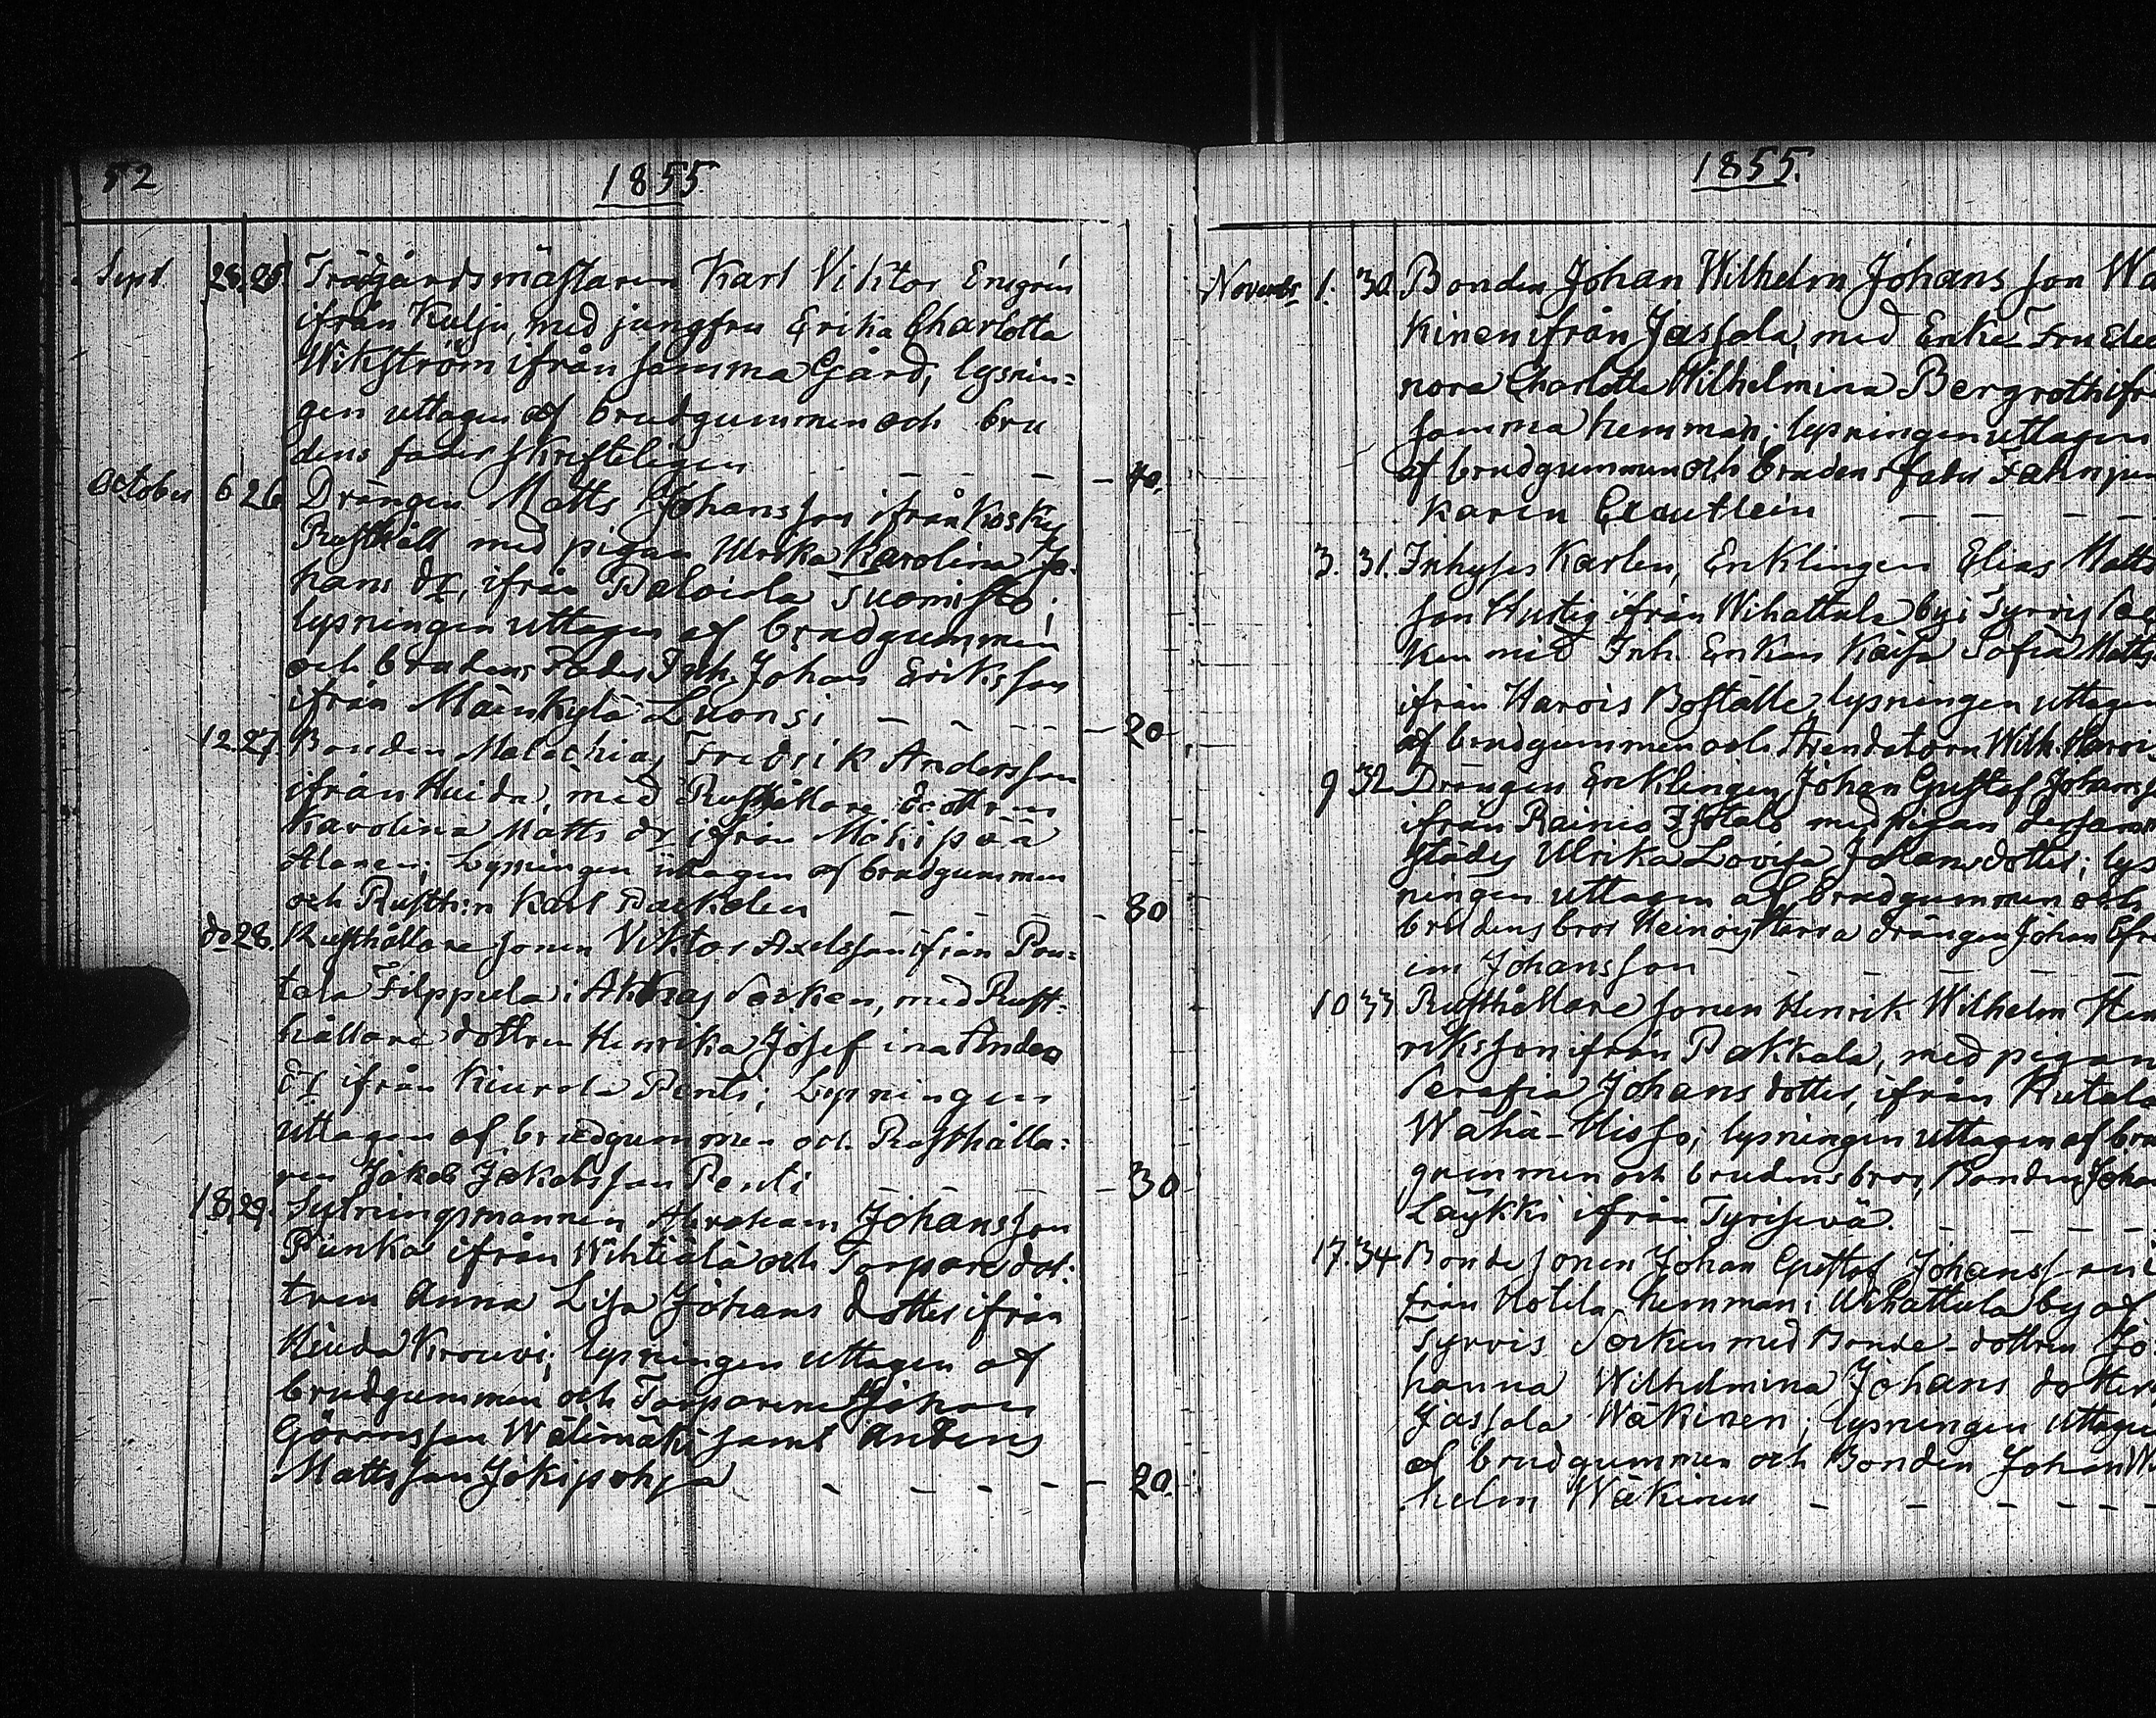 52
1855
Sept. 28. 25. Trädgårdsmästaren Karl Viktor Engrén
ifrån Kulju, med jungfru Erika Charlotta
Wikström ifrån samma Gård, lysnin=
gen uttagen af brudgummen och bru
dens fader skrifteligen — — — 40.
October 6 26 Drängen Matts Johansson ifrån Kosky
Rusthåll med pigan Ulrika Karolina Jo-
hans dr, ifrån Paloisla Suomisto;
lysningen uttagen af brudgummen
och brudens Fader Inh. Johan Eriksson
ifrån Mäenkylä Luonsi — — — 20
12. 27 Bonden Malachias Fredrik Andersson
ifrån Huida, med Rusthållare dottren
Karolina Matts dr ifrån Mäkipää
Alanen; Lysningen uttagen af brudgummen
och Rusth:n Karl — — — 30
do 28. Rusthållare sonen Viktor Axelsson ifrån Pou=
tala Filppula i Akkas Socken, med Rust=
hållare dottren Henrika Josefina Anders
dr ifrån Kiurola Penti; Lysningen
uttagen af brudgummen och Rusthålla=
ren Jakob Jakobsson Penti — — — 30
18. 29. Sytningsmannen Abraham Johansson
Punka ifrån Wihtiälä och Torpare dot:
tren Anna Lisa Johans dotter ifrån
Krouvi; lysningen uttagen af
brudgummen och Torparene Johan
Göransson Wälimäki samt Anders
Mattsson Jokipohja — — — 20.
1855.
Novembr 1. 30. Bonden Johan Wilhelm Johans son Wä
kinen ifrån Jassola, med Enke-Fru Eleo
nora Charlotta Wilhelmina Bergroth ifr
samma hemman; lysningen uttagen
af brudgummen och brudens fader Fahnjun
karen — — —
3. 31. Inhyses Karlen, Enklingen Elias Matts
son Hustig ifrån Wihattula by i Tyrvis So
ken med Inh. Enkan Kaisa Sofia Matts
ifrån Harois Boställe, lysningen uttagen
af brudgummen och Arendatorn Wilh. Harois
9 32. Drängen Enklingen Johan Gustaf Johans
ifrån Rainio Isotalo med pigan dersamma
städes Ulrika Lovisa Johansdotter; lys
ningen uttagen af brudgummen och
brudens bror Heinois Harra drängen Johan Efra
im Johansson — — — —
10 33 Rusthållare sonen Henrik Wilhelm Hen
riksson ifrån Pakkala, med pigan
Serafia Johans dotter, ifrån Kutala
Wähä-Hisso; lysningen uttagen af bru
gummen och brudens bror, Bonden Joha
Läykki ifrån Tyrisevä. — — —
17. 34 Bonde sonen Johan Gustaf Johansson i
från Hotila hemman i Wihattula by af
Tyrvis Socken med Bonde-dottren Jo=
hanna Wilhelmina Johans dotter
Jassola Wäkinen; lysningen uttagen
af brudgummen och Bonden Johan Wil
helm Wäkinen — — — —